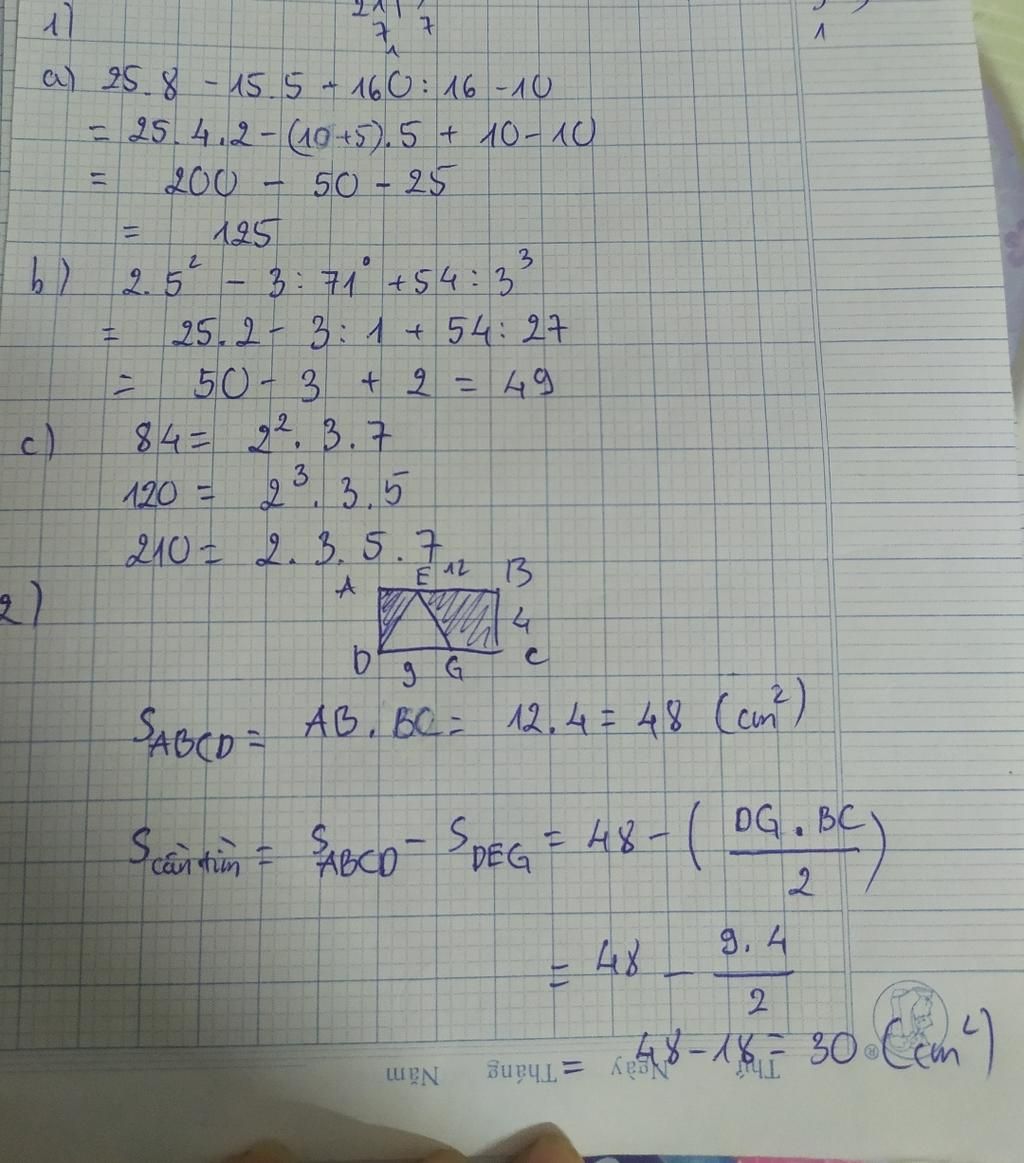 1)
7 7
1
1
a) 25.8 - 15.5 + 160 : 16 - 10
= 25.4.2 - (10+5).5 + 10 - 10
= 200 - 50 - 25
= 125
b) 2.5² - 3 : 71° + 54 : 3³
= 25.2 - 3 : 1 + 54 : 27
= 50 - 3 + 2 = 49
c) 84 = 2². 3. 7
120 = 2³. 3. 5
210 = 2. 3. 5. 7
2)
A E 12 B
4
D 9 G C
S_ABCD = AB. BC = 12.4 = 48 (cm²)
S_cần tìm = S_ABCD - S_DEG = 48 - (DG . BC / 2)
= 48 - 9.4 / 2
= 48 - 18 = 30 (cm²)
Thứ Ngày Tháng Năm
®